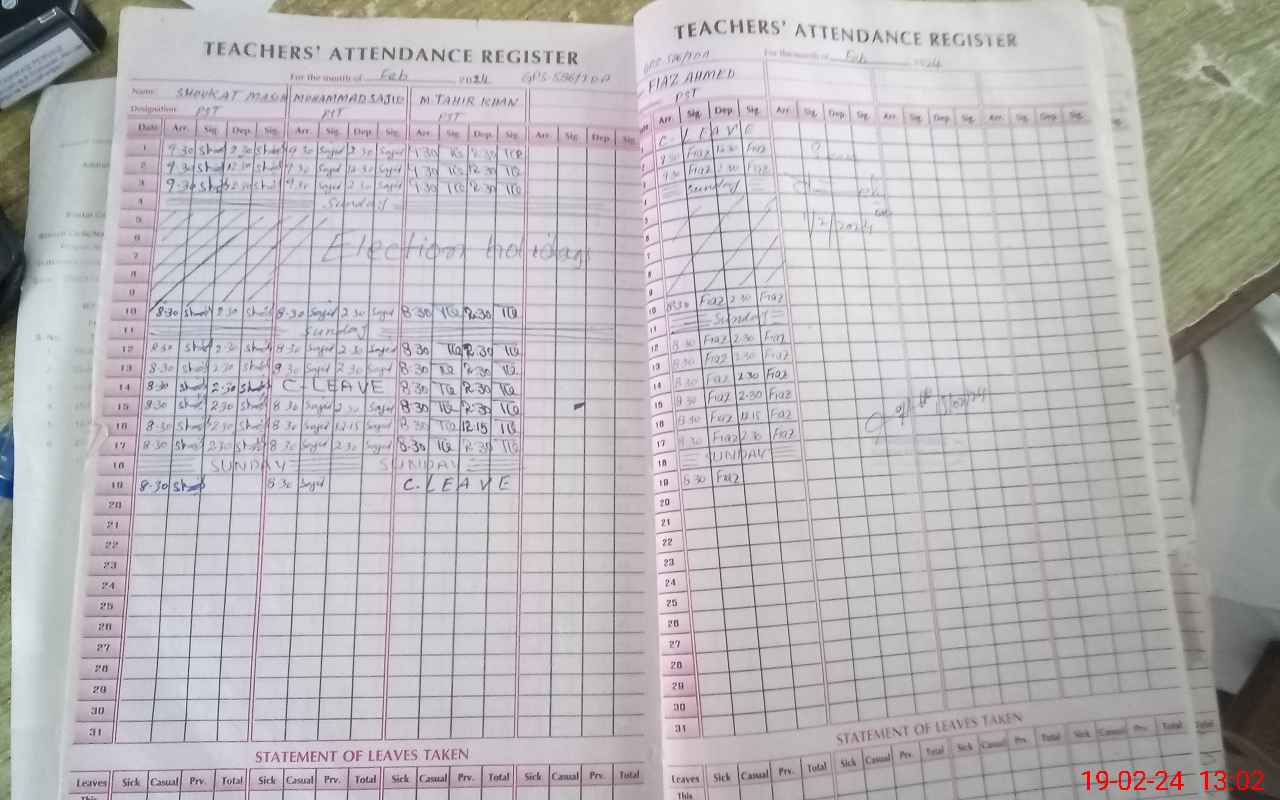 TEACHERS' ATTENDANCE REGISTER
For the month of Feb 2024 GPS-596/TDA
Name: SHOUKAT MASIH MOHAMMAD SAJID M TAHIR KHAN
Designation: PST PST PST
Date Arr. Sig. Dep. Sig. Arr. Sig. Dep. Sig. Arr. Sig. Dep. Sig. Arr. Sig. Dep. Sig.
1 9.30 2.30 9.30 Sajid 2.30 Sajid 9.30 TQ 2.30 TQ
2 9.30 12.30 9.30 Sajid 12.30 Sajid 9.30 TQ 12.30 TQ
3 9.30 2.30 9.30 Sajid 2.30 Sajid 9.30 TQ 2.30 TQ
4 Sunday
5
6 Election holiday
7
8
9
10 8.30 2.30 8.30 Sajid 2.30 Sajid 8.30 TQ 2.30 TQ
11 Sunday
12 8.30 2.30 8.30 Sajid 2.30 Sajid 8.30 TQ 2.30 TQ
13 8.30 2.30 8.30 Sajid 2.30 Sajid 8.30 TQ 2.30 TQ
14 8.30 2.30 C-LEAVE 8.30 TQ 2.30 TQ
15 8.30 2.30 8.30 Sajid 2.30 Sajid 8.30 TQ 2.30 TQ
16 8.30 8.30 Sajid 12.15 Sajid 8.30 TQ 12.15 TQ
17 8.30 2.30 8.30 Sajid 2.30 Sajid 8.30 TQ 2.30 TQ
18 SUNDAY SUNDAY
19 8.30 8.30 Sajid C.LEAVE
20
21
22
23
24
25
26
27
28
29
30
31
STATEMENT OF LEAVES TAKEN
Leaves Sick Casual Prv. Total Sick Casual Prv. Total Sick Casual Prv. Total Sick Casual Prv. Total
This
TEACHERS' ATTENDANCE REGISTER
GPS 596/TDA For the month of Feb 2024
FIAZ AHMED
PST
Arr. Sig. Dep. Sig. Arr. Sig. Dep. Sig. Arr. Sig. Dep. Sig. Arr. Sig. Dep. Sig.
C- LEAVE
9.30 Fiaz 12.30 Fiaz
9.30 Fiaz 2.30 Fiaz
4 Sunday
5
6 1/2/2024
7
8
9
10 8.30 Fiaz 2.30 Fiaz
11 Sunday
12 8.30 Fiaz 2.30 Fiaz
13 8.30 Fiaz 2.30 Fiaz
14 8.30 Fiaz 2.30 Fiaz
15 8.30 Fiaz 2.30 Fiaz
16 8.30 Fiaz 12.15 Fiaz
17 8.30 Fiaz 2.30 Fiaz
18 SUNDAY
19 8.30 Fiaz
20
21
22
23
24
25
26
27
28
29
30
31
STATEMENT OF LEAVES TAKEN
Leaves Sick Casual Prv. Total Sick Casual Prv. Total Sick Casual Prv. Total Sick Casual Prv. Total
This
19-02-24 13:02